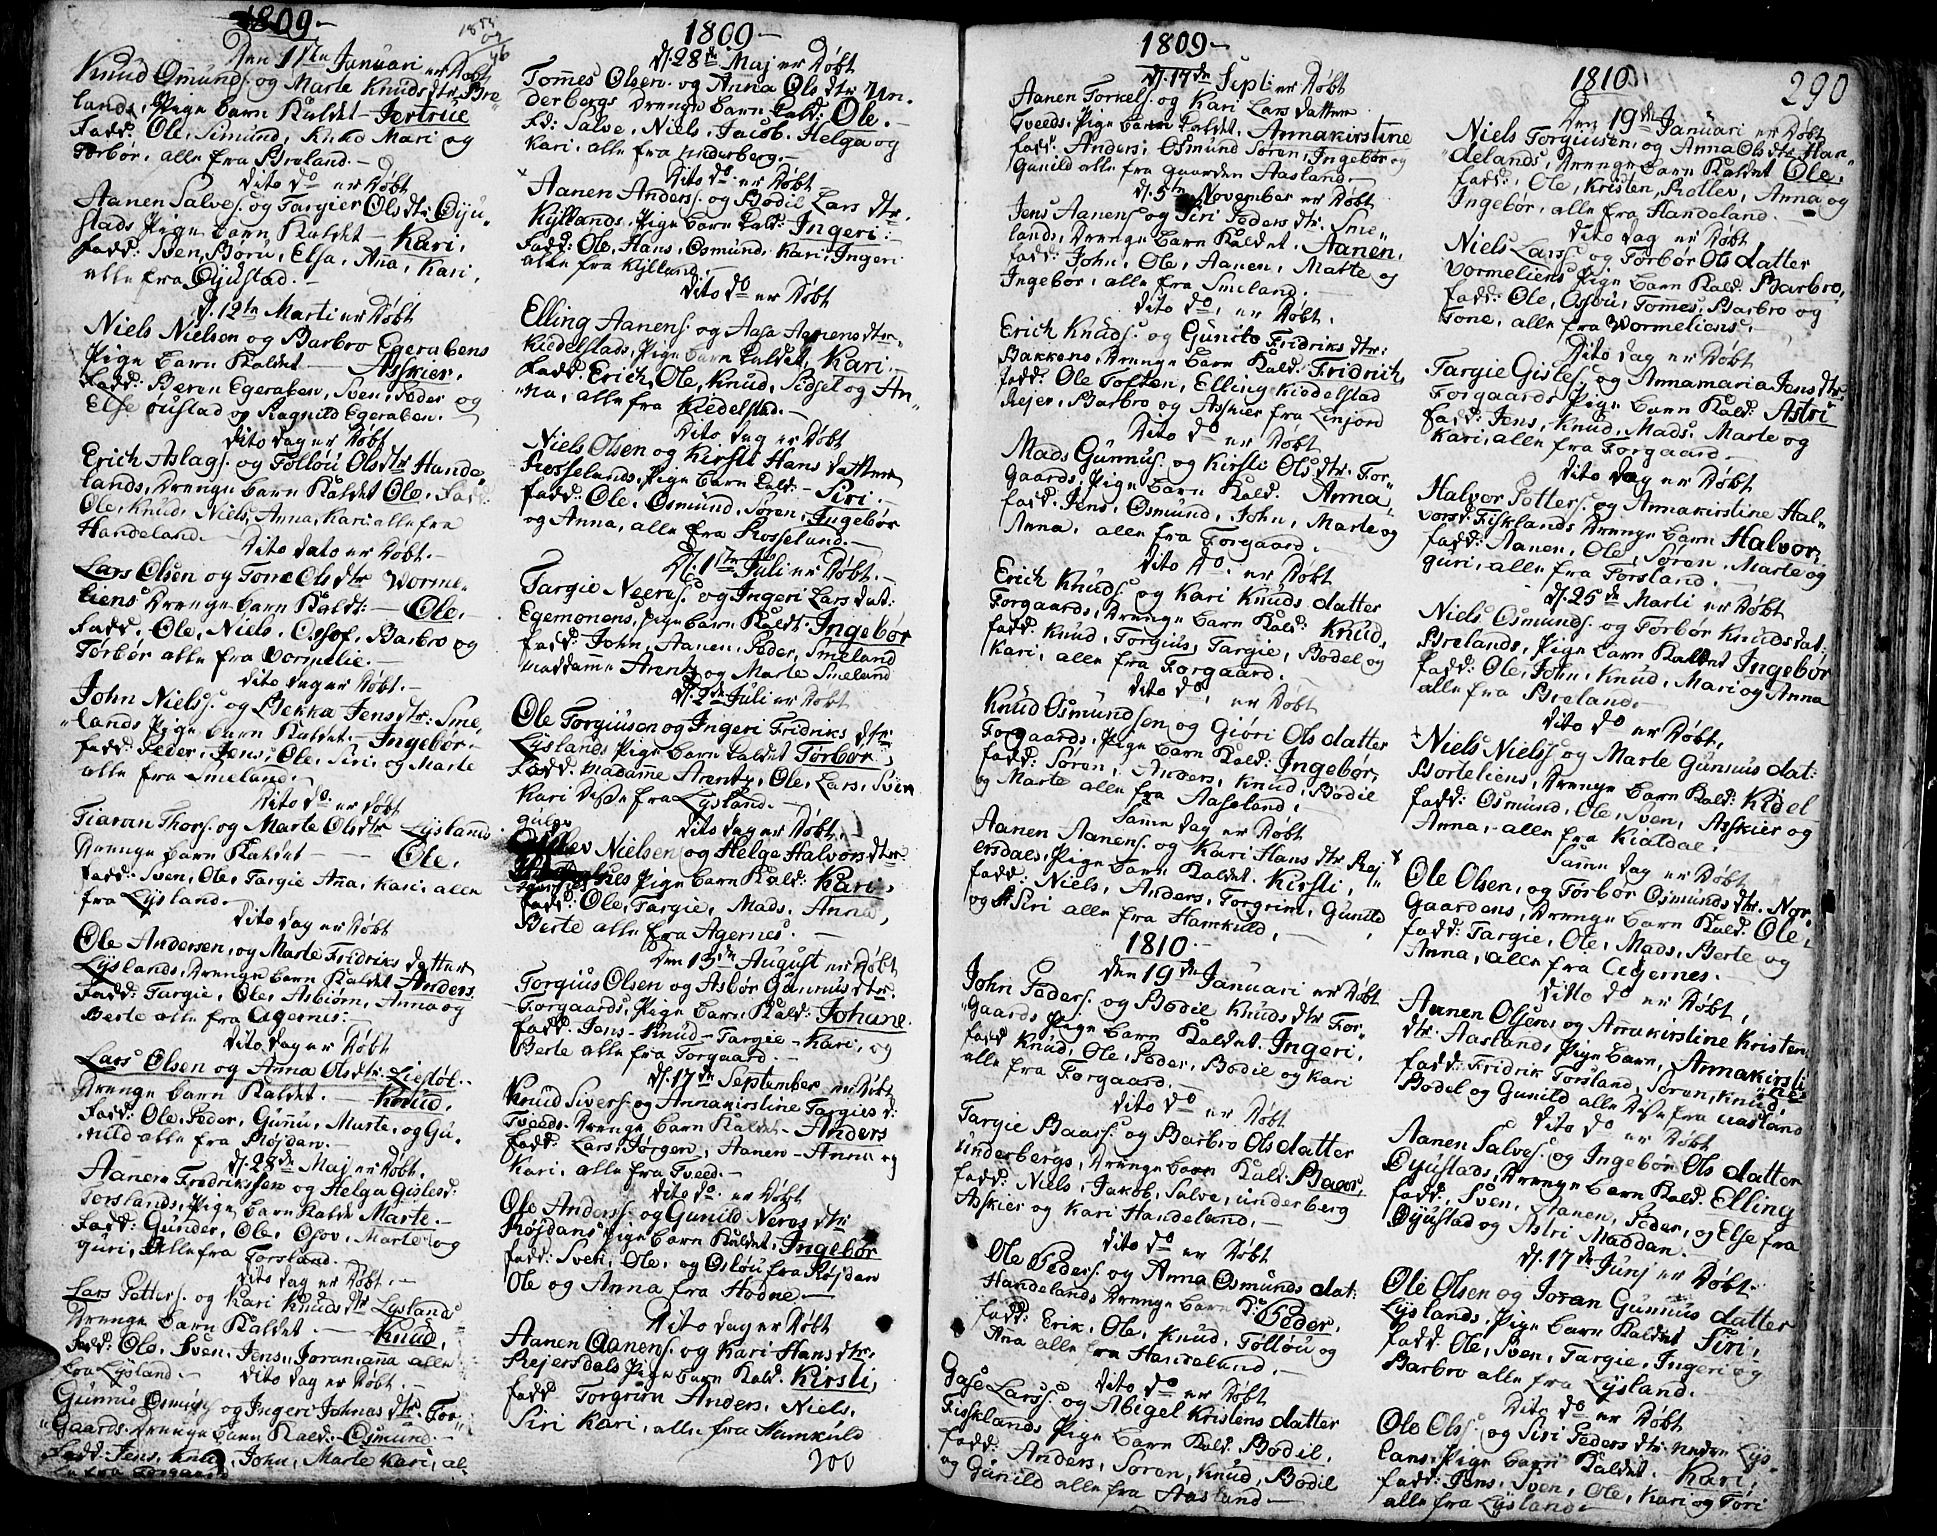 1809 —
Den 17de Januari er Døbt
Knud Osmunds: og Marte Knuds dtr: Bre„
lands, Pige barn Kaldet — Jertrue
Fadd: Ole, Simund, Knud Mari og
Torbør, alle fra Breland. —
Dito do er Døbt
Aanen Salves: og Targier Ols dtr: Øÿu„
stads Pige barn Kaldet — Kari.
Fadd: Sven, Børu, Elsa, Aña, Kari,
alle fra Øÿustad. —
D. 12te Marti er Døbt
Niels Nielsen og Barbro Egerabens
Pige barn Kaldet — Asskier.
Fadd: Beren Egeraben, Sven, Peder og
Else øÿustad og Ragnild Egeraben. —
dito dag er Døbt
Erich Aslags: og Tolløu Ols dtr Hande
lands, Drenge barn Kaldet Ole. Fadd:
Ole, Knud, Niels, Anna, Kari alle fra
Handeland. —
Dito dato er Døbt. —
Lars Olsen og Tone Ols dtr Vorme„
liens Drenge barn Kaldt: — Ole.
Fadd. Ole, Niels, Ossof, Barbro og
Torbør alle fra Vormelie. —
dito dag er Døbt. —
John Niels: og Bekka Jens dtr: Sme„
„lands Pige barn Kaldet. — Ingebør. —
Fadd: Peder, Jens, Ole, Siri, og Marte
alle fra Smeland. —
Dito do: er Døbt
Tiaran Thors: og Marte Ols dtr Lÿslands
Drenge barn Kaldet — Ole.
Fadd: Sven, Ole, Targie Aña, Kari, alle
fra Lÿsland. —
Dito dag er Døbt
Ole Andersen, og Marte Fridriks datter
Lÿslands, Drenge barn Kaldet Anders
Fadd: Targie, Ole, Asbiørn, Anna og
Berte alle fra Agernes. —
Dito dag er Døbt
Lars Olsen og Anna Ols dtr: Lieføl.
Drenge barn Kaldet. — Knud.
Fadd: Ole, Peder, Guñu, Marte, og Gu„
nild alle fra Røjdan. —
D. 28de Maj er Døbt.
Aanen Fredrikssen og Helga Gisles d:
Torslands, Pige barn Kaldt Marte. —
Fadd: Gunder, Ole, Osov, Marte og
Guri, alle fra Torsland. —
Dito dag er Døbt. —
Lars Petters: og Kari Knuds dtr Lÿslands
Drenge barn Kaldet. — Knud.
Fadd: Ole, Sven, Jens, Joran, aña alle
fra Lÿsland. —
Dito dag er Døbt. —
Gunnu Osmunds: og Ingeri Johnas dtr For„
„gaards Drenge barn Kald: Osmund. —
Fadd: Jens, Knud, John, Marte Kari, al„
le fra Forgaard
1809 —
D. 28de Maj er Døbt
Tomes Olsen og Anna Ols dtr Un„
derbergs Drenge barn Kald: Ole. —
Fd: Salve, Niels, Jacob, Helga og
Kari, alle fra Underberg. —
Dito do: er Døbt
Aanen Anders: og Bodil Lars dtr.
Kÿllands Pige barn Kald: Ingeri. —
Fadd: Ole, Hans, Osmund, Kari, Ingeri
alle fra Kÿlland. —
Dito do er Døbt
Elling Aanens: og Aasa Aanens dtr
Kiedelstads, Pige barn Kaldet, Kari. —
Fadd. Erich, Ole, Knud, Sidsel og An„
„na, alle fra Kiedelstad. —
Dito dag er Døbt
Niels Olsen og Kirsti Hans datter
Rosselands, Pige barn Kald: — Siri. —
Fadd: Ole, Osmund, Søren, Ingebør
og Anna, alle fra Rosseland. —
D. 1te Juli er Døbt. —
Targie Neeres: og Ingeri Lars dat:
Egemonens, Pige barn Kaldt: Ingebør
Fadd: John, Aanen, Peder, Smeland
maddame Arentz og Marte Smeland
D. 2de Juli er Døbt
Ole Torgiusen og Ingeri Fridriks dtr
Lÿslands Pige barn Kaldet Torbør,
Fadd. Madame Arentz, Ole, Lars, Sven
Kari Disse fra Lÿsland. —
Dito dag er Døbt,
Nielsen og Helge Halvors dtr.
Pige barn Kald: Kari,
Fadd: Ole, Targie, Mads, Anna,
Berte alle fra Agernes. —
Den 13de August er Døbt
Torgius Olsen og Asbør Guñus dtr:
Forgaards, Pige barn Kald: Johane.
Fadd: Jens — Knud — Targie — Kari, og
Berte alle fra Forgaard. —
D. 17de September er Døbt
Knud Sivers: og Annakirstine Targies d:
Tveeds Drenge barn Kaldet — Anders
Fadd: Lars, Jørgen, Aanen — Anna og
Kari, alle fra Tveed. —
Dito do: er Døbt
Ole Anders: og Gunild Neres dtr
Røjdans Pige barn Kaldet, Ingebør
Fadd: Sven, Ole, og Osløu fra Røjdan
Ole og Anna fra Hodne. —
Dito dag er Døbt
Aanen Aanens: og Kari Hans dtr
Rejersdals Pige barn Kald. Kirsti,
Fadd Torgrim Anders, Niels,
Siri Kari, alle fra Hamkuld
200
1809 —
D. 17de Sept: er Døbt
Aanen Torkels: og Kari Lars datter
Tveeds, Pige barn Kaldet, Annakirstine
Fadd: Anders, Osmund Søren, Ingebør og
Gunild alle fra gaarden Aasland. —
D. 5te November er Døbt
Jens Aanens: og Siri Peders dtr: Sme„
lands, Drenge barn Kaldet. Aanen,
Fadd: John, Ole, Aanen, Marte og
Ingebør, alle fra Smeland. —
Dito do, er Døbt.
Erich Knuds: og Gunito Fridriks dtr:
Bakkens, Drenge barn Kald: Fridrich,
Fadd: Ole Tolsen, Elling Kiddelstad
Rejer, Barbro og Asskier fra Linjord
Dito do er Døbt
Mads Gunnus: og Kirsti Ols dtr: For„
gaards, Pige barn Kald: Anna,
Fadd: Jens, Osmund, John, Marte og
Anna, alle fra Forgaard. —
Dito do: er Døbt
Erich Knuds: og Kari Knuds datter
Forgaards, Drenge barn Kald: Knud.
Fadd: Knud, Torgius, Targie, Bodel og
Kari, alle fra Forgaard. —
Dito do, er Døbt
Knud Osmundsen og Giøri Ols datter
Forgaards, Pige barn Kald: Ingebør,
Fadd: Søren, Anders, Knud, Bodil
og Marte alle fra Aaseland,
Same dag er Døbt
Aanen Aanens: og Kari Hans dtr Rej„
ersdals, Pige barn Kaldet. Kirsti,
Fadd: Niels, Anders, Torgrim, Gunild
og Siri alle fra Hamkuld,
1810. —
Den 19de Januari er Døbt
John Peders: og Bodil Knuds dtr For„
„gaards Pige barn Kaldet. Ingeri,
Fadd Knud, Ole, Peder, Bodil og Kari
alle fra Forgaard. —
Dito do er Døbt
Targie Baars: og Barbro Ols datter
Underbergs, Drenge barn Kald: Baar,
Fadd: Niels, Jakob, Salve, Underberg
Asskier og Kari Handeland, —
Dito do er Døbt
Ole Peders: og Anna Osmunds dat:
Handelands Drenge barn K: Peder,
Fadd: Erik, Ole, Knud, Tolløu og
Ana alle fra Handeland. —
Dito do er Døbt
Gase Larss: og Abigel Kristens datter
Fisklands Pige barn Kald. Bodil,
Fadd: Anders, Søren, Knud, Bodil
og Gunild alle fra Aasland —
1810
290
Den 19de Januari er Døbt
Niels Torgiusen, og Anna Ols dtr Han„
„delands, Drenge barn Kaldet Ole.
Fadd:, Ole, Kristen, Rollev, Anna og
Ingebør, alle fra Handeland. —
Dito dag er Døbt
Niels Lars: og Torbør Ols datter
Vormeliens Pige barn Kald. Barbro,
Fadd: Ole, Osvu, Tomes, Barbro og
Tone, alle fra Vormeliens,
Dito dag er Døbt
Targie Gisles: og Annamaria Jens dtr
Forgaards Pige barn Kald: Astri
Fadd: Jens, Knud, Mads, Marte og
Kari, alle fra Forgaard —
Dito dag er Døbt
Halvor Petters: og Annakirstine Hal„
vorsd: Fisklands Drenge barn Halvor,
Fadd: Aanen, Ole, Søren, Marte og
Guri, alle fra Torsland. —
D. 25de Marti er Døbt
Niels Osmunds: og Torbør Knuds dat:
Brelands, Pige barn Kaldet Ingebør
Fadd: Ole, John, Knud, Mari og Anna
alle fra Breland. —
Dito do er Døbt,
Niels Niels: og Marte Gunnus dat:
Borteliens, Drenge barn Kald: Kidel
Fadd: Osmund, Ole, Sven, Asskier og
Anna, — alle fra Kialdal,
Same dag er Døbt
Ole Olsen, og Torbør Osmunds dtr. Nor„
Gaardens, Drenge barn Kald: Ole,
Fadd: Targie, Ole, Mads, Berte og
Anna, alle fra Agernes. —
Ditto do er Døbt,
Aanen Olsen og Anakirstine Kristen
dtr. Aaslands Pige barn, Annakirsti
„ne
Fadd: Fridrik Torsland, Søren, Knud,
Bodel og Gunild alle Disse fra Aasland
Dito do er Døbt
Aanen Salves: og Ingebør Ols datter
Øÿustads, Drenge barn Kald. Elling
Fadd:, Sven, Aanen, Peder, og Else fra
Øÿustad og Astri Maddan. —
D. 17de Junj er Døbt.
Ole Olsen og Joran Gunnus datter
Lÿslands, Pige barn Kaldet Siri,
Fadd: Ole, Sven, Targie, Ingeri og
Barbro alle fra Lÿsland. —
Dito do er Døbt
Ole Ols: og Siri Peders dtr neden Lÿs„
lans, Pige barn Kaldet. Kari,
Fadd: Jens, Sven, Ole, Kari og Tori
alle fra Lÿsland —